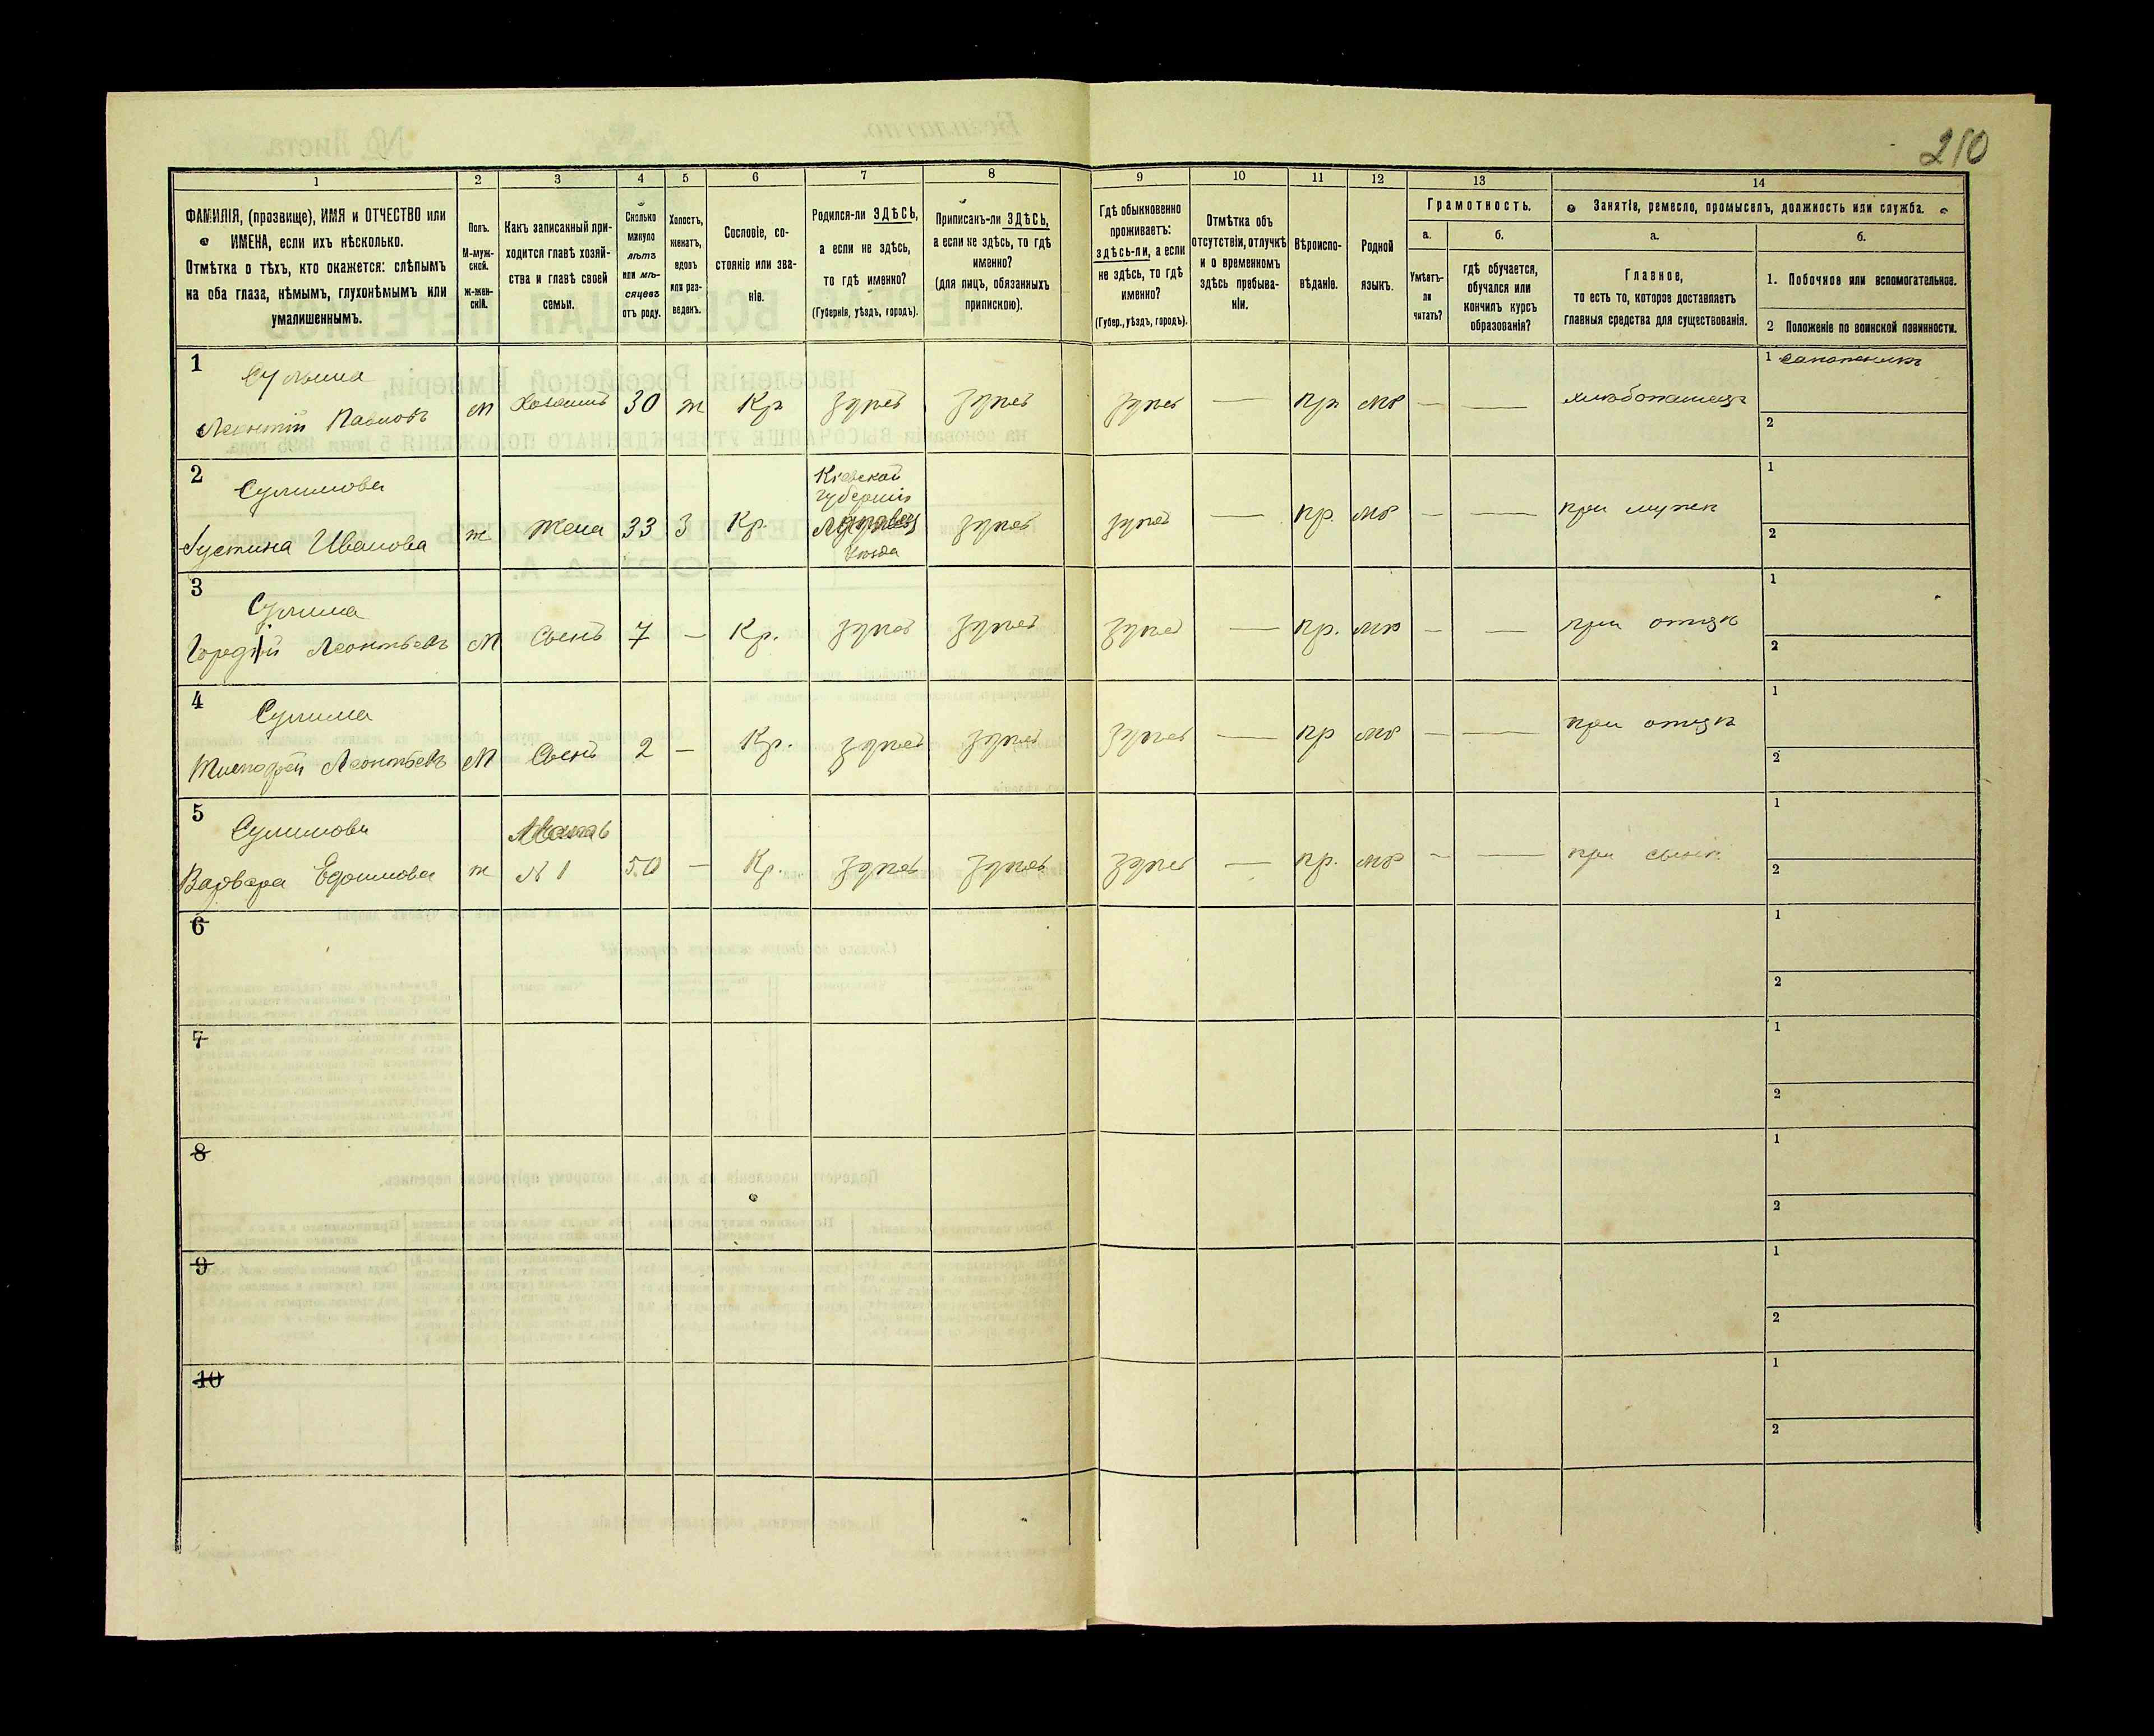 210
1 2 3 4 5 6 7 8 9 10 11 12 13 14
ФАМИЛІЯ, (прозвище), ИМЯ и ОТЧЕСТВО или
ИМЕНА, если ихъ нѣсколько.
Отмѣтка о тѣхъ, кто окажется: слѣпымъ
на оба глаза, нѣмымъ, глухонѣмымъ или
умалишеннымъ.
Полъ.
М-муж-
ской.
ж-жен-
скій.
Какъ записанный при-
ходится главѣ хозяй-
ства и главѣ своей
семьи.
Сколько
минуло
лѣтъ
или мѣ-
сяцевъ
отъ роду.
Холостъ,
женатъ,
вдовъ
или раз-
веденъ.
Сословіе, со-
стояніе или зва-
ніе.
Родился-ли ЗДѢСЬ,
а если не здѣсь,
то гдѣ именно?
(Губернія, уѣздъ, городъ).
Приписанъ-ли ЗДѢСЬ,
а если не здѣсь, то гдѣ
именно?
(для лицъ, обязанныхъ
припискою).
Гдѣ обыкновенно
проживаетъ:
здѣсь-ли, а если
не здѣсь, то гдѣ
именно?
(Губер., уѣздъ, городъ).
Отмѣтка объ
отсутствіи, отлучкѣ
и о временномъ
здѣсь пребыва-
ніи.
Вѣроиспо-
вѣданіе.
Родной
языкъ.
Грамотность.
а.
Умѣетъ-
ли
читать?
б.
гдѣ обучается,
обучался или
кончилъ курсъ
образованія?
Занятіе, ремесло, промыселъ, должность или служба.
а.
Главное,
то есть то, которое доставляетъ
главныя средства для существованія.
б.
1. Побочное или вспомогательное.
2 Положеніе по воинской повинности.
1 Сулима
Леонтій Павловъ М Хозяинъ 30 ж Кр здѣсь здѣсь здѣсь — пр мр — — хлѣбопашецъ 1 сапожникъ
2
2 Сулимова
Іустина Иванова ж Жена 33 З Кр. Кіевской
губерніи
уѣзда здѣсь здѣсь — пр. мр — — при мужѣ 1
2
3 Сулима
Гордій Леонтьевъ М Сынъ 7 — Кр. здѣсь здѣсь здѣсь — пр. мр — — при отцѣ 1
2
4 Сулима
Тимофей Леонтьевъ М Сынъ 2 — Кр. здѣсь здѣсь здѣсь — пр мр — — при отцѣ 1
2
5 Сулимова Мать
Варвара Ефимова ж № 1 50 — Кр. здѣсь здѣсь здѣсь — пр. мр — — при сынѣ 1
2
6 1
2
7 1
2
8 1
2
9 1
2
10 1
2